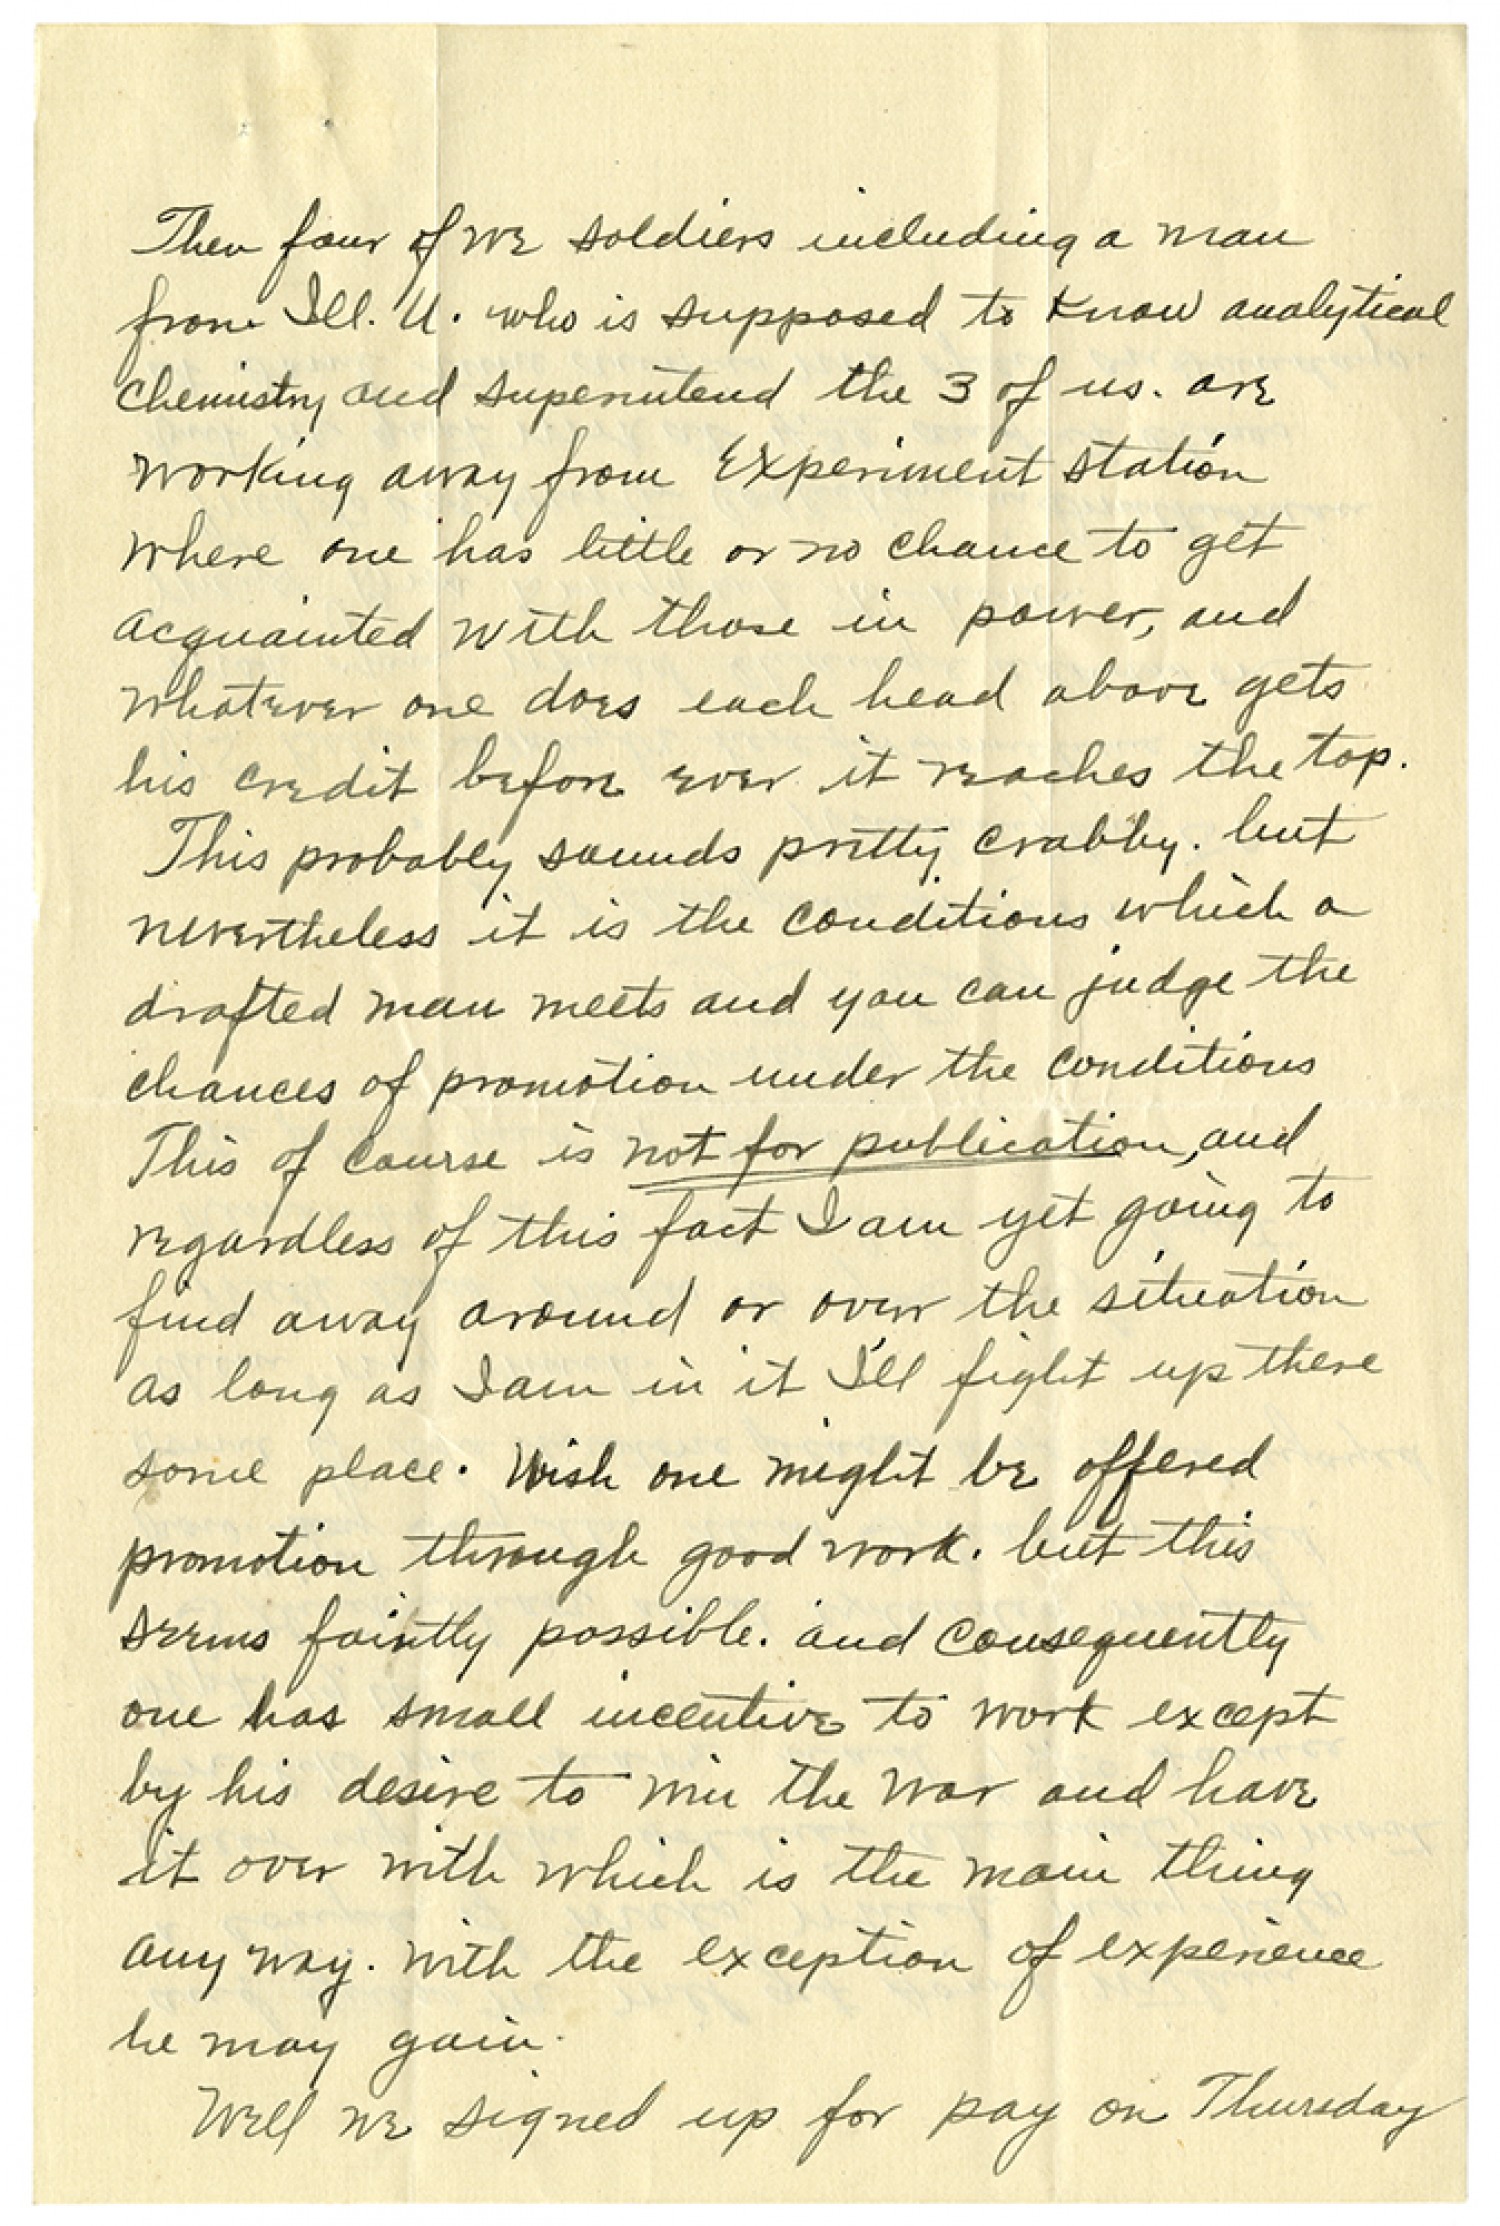 Then four of we soldiers including a man
from Ill. U. who is supposed to know analytical
chemistry and superintend the 3 of us. are
working away from Experiment station
where one has little or no chance to get
acquainted with those in power, and
whatever one does each head above gets
his credit before ever it reaches the top.
This probably sounds pretty crabby. but
nevertheless it is the conditions which a
drafted man meets and you can judge the
chances of promotion under the conditions
This of course is not for publication, and
regardless of this fact I am yet going to
find away around or over the situation
as long as I am in it I'll fight up there
some place. Wish one might be offered
promotion through good work. but this
seems faintly possible. and consequently
one has small incentive to work except
by his desire to win the war and have
it over with which is the main thing
any way. with the exception of experience
he may gain.
Well we signed up for pay on Thursday